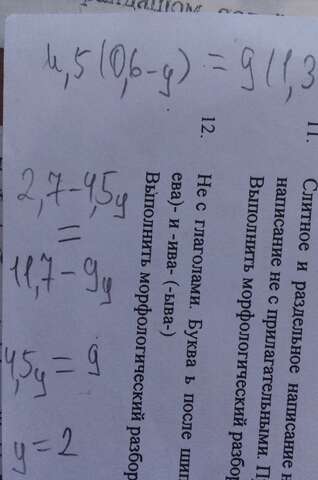 4,5(0,6-y) = 9(1,3
2,7-4,5y
=
11,7-9y
4,5y = 9
y = 2
11.
Слитное и раздельное написание н
написание не с прилагательными. П
Выполнить морфологический разбор
12.
Не с глаголами. Буква ь после шип
ева)- и -ива- (-ыва-)
Выполнить морфологический разбор